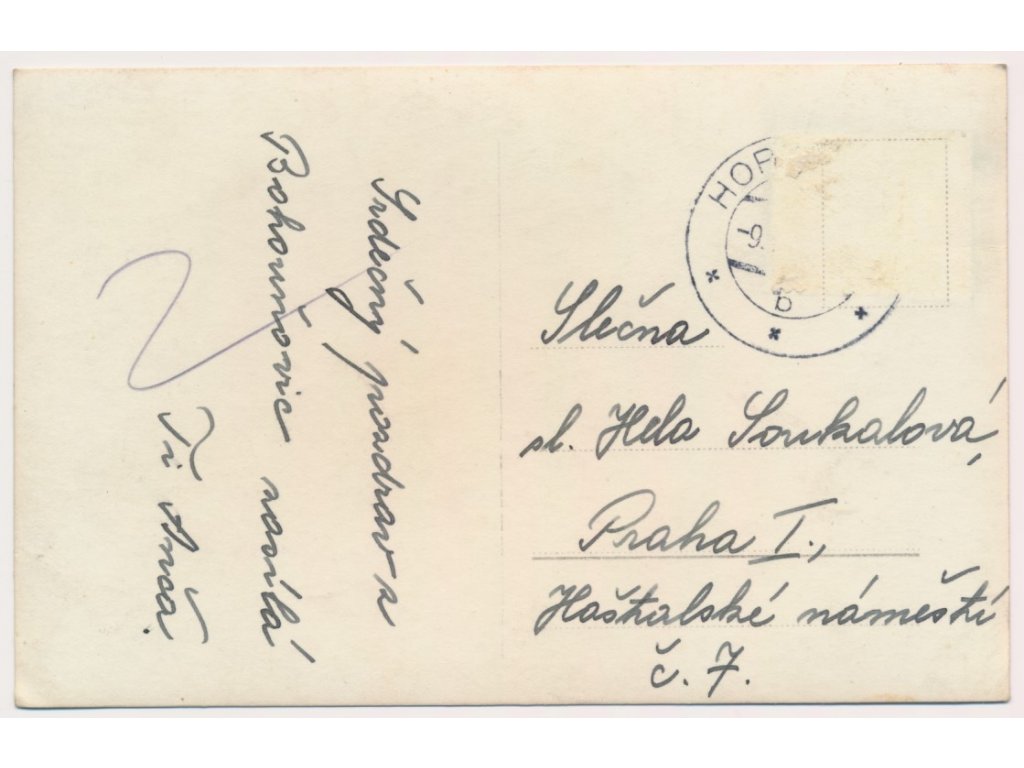 Srdečný pozdrav z
Bohouňovic zasílá
Ti Anča.
HOR
9
b
Slečna
sl. Hela Soukalová,
Praha I.,
Haštalské náměstí
č. 7.